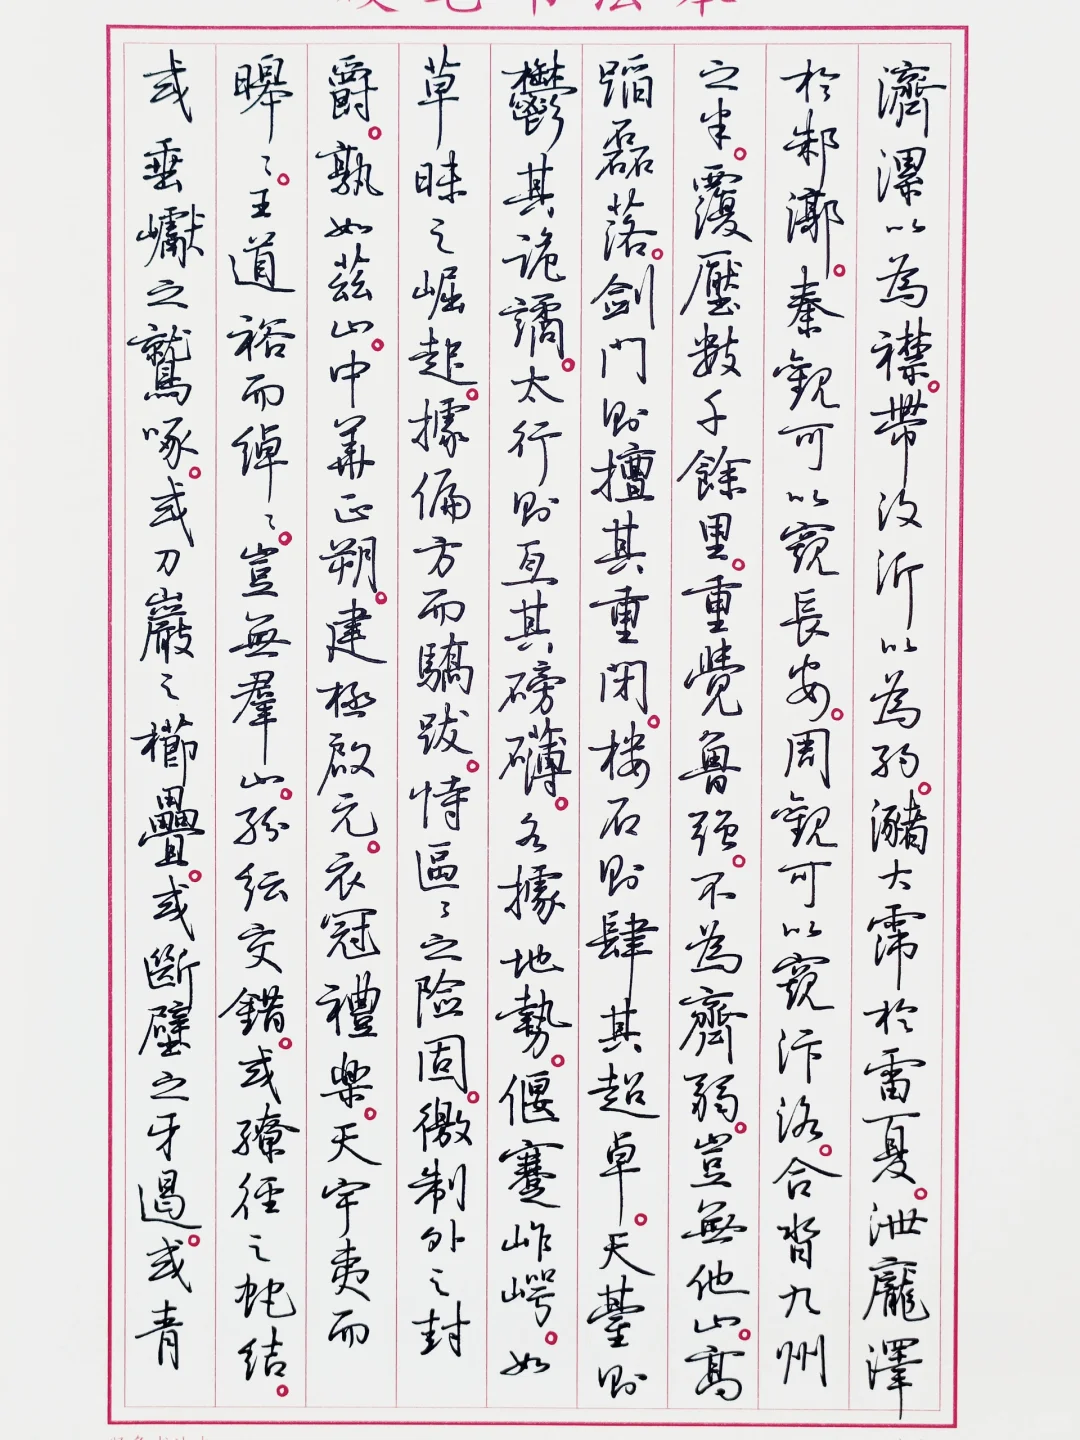 濟漯以為襟。帶汶沂以為弱。瀦大霈於雷夏。泄龐澤
於邾漷。秦觀可以窺長安。周觀可以窺汴洛。合沓九州
之半。覆壓數千餘里。重覺魯强。不為齊弱。豈無他山。嵩
蹈磊落。劍門則擅其重閉。棧石則肆其超卓。天臺則
鬱其詭譎。太行則亙其磅礴。各據地勢。偃蹇岞崿。如
草昧之崛起。據偏方而驕跋。恃區區之險固。徼制外之封
爵。孰如茲山。中華正朔。建極啟元。衣冠禮樂。天宇夷而
皞皞。王道裕而綽綽。豈無羣山。紛紜交錯。或繚徑之蛇結。
或垂巘之鷲啄。或刀巖之櫛疊。或斷壁之牙遏。或青